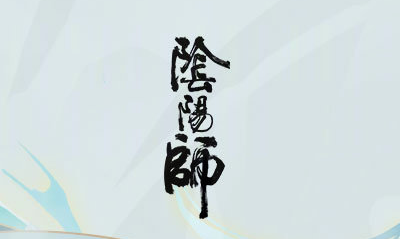 陰陽師